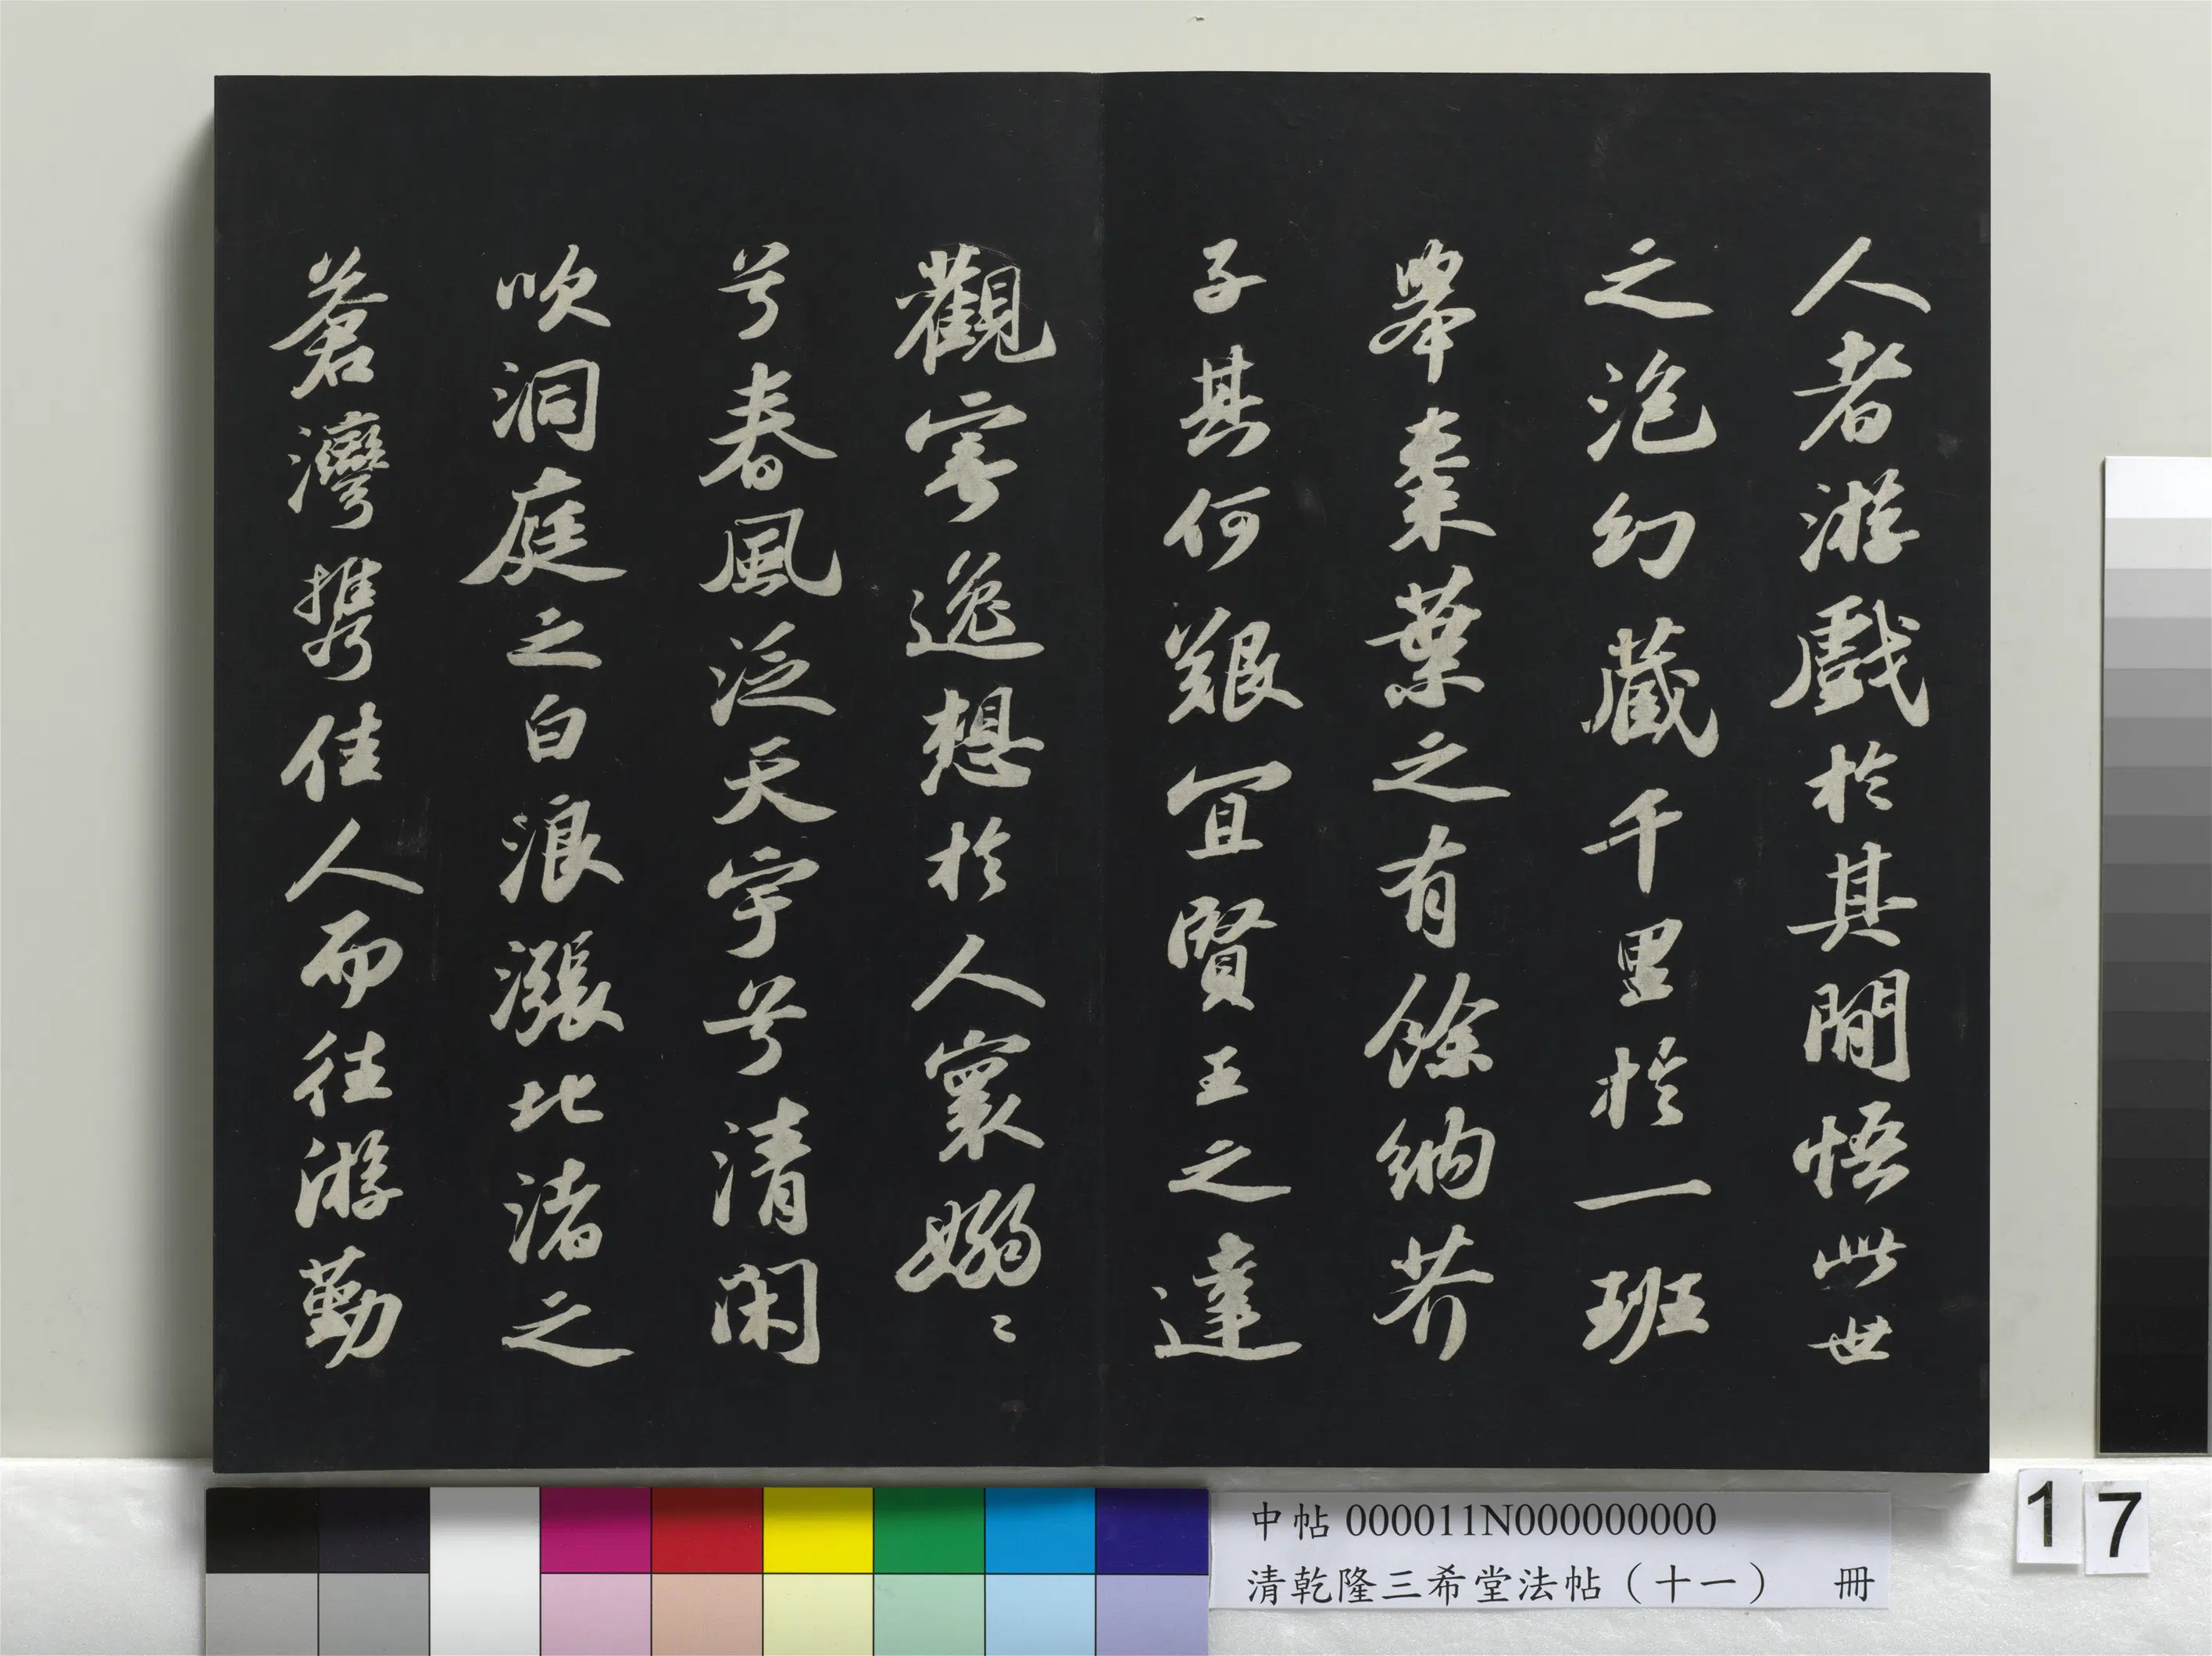 人者游戲於其間悟此世
之泡幻藏千里於一班
舉棗葉之有餘納芥
子其何艱宜賢王之達
觀寄逸想於人寰嫋〻
兮春風泛天宇兮清閑
吹洞庭之白浪漲北渚之
蒼灣携佳人而往游勤
中帖 000011N000000000
清乾隆三希堂法帖（十一） 冊
17